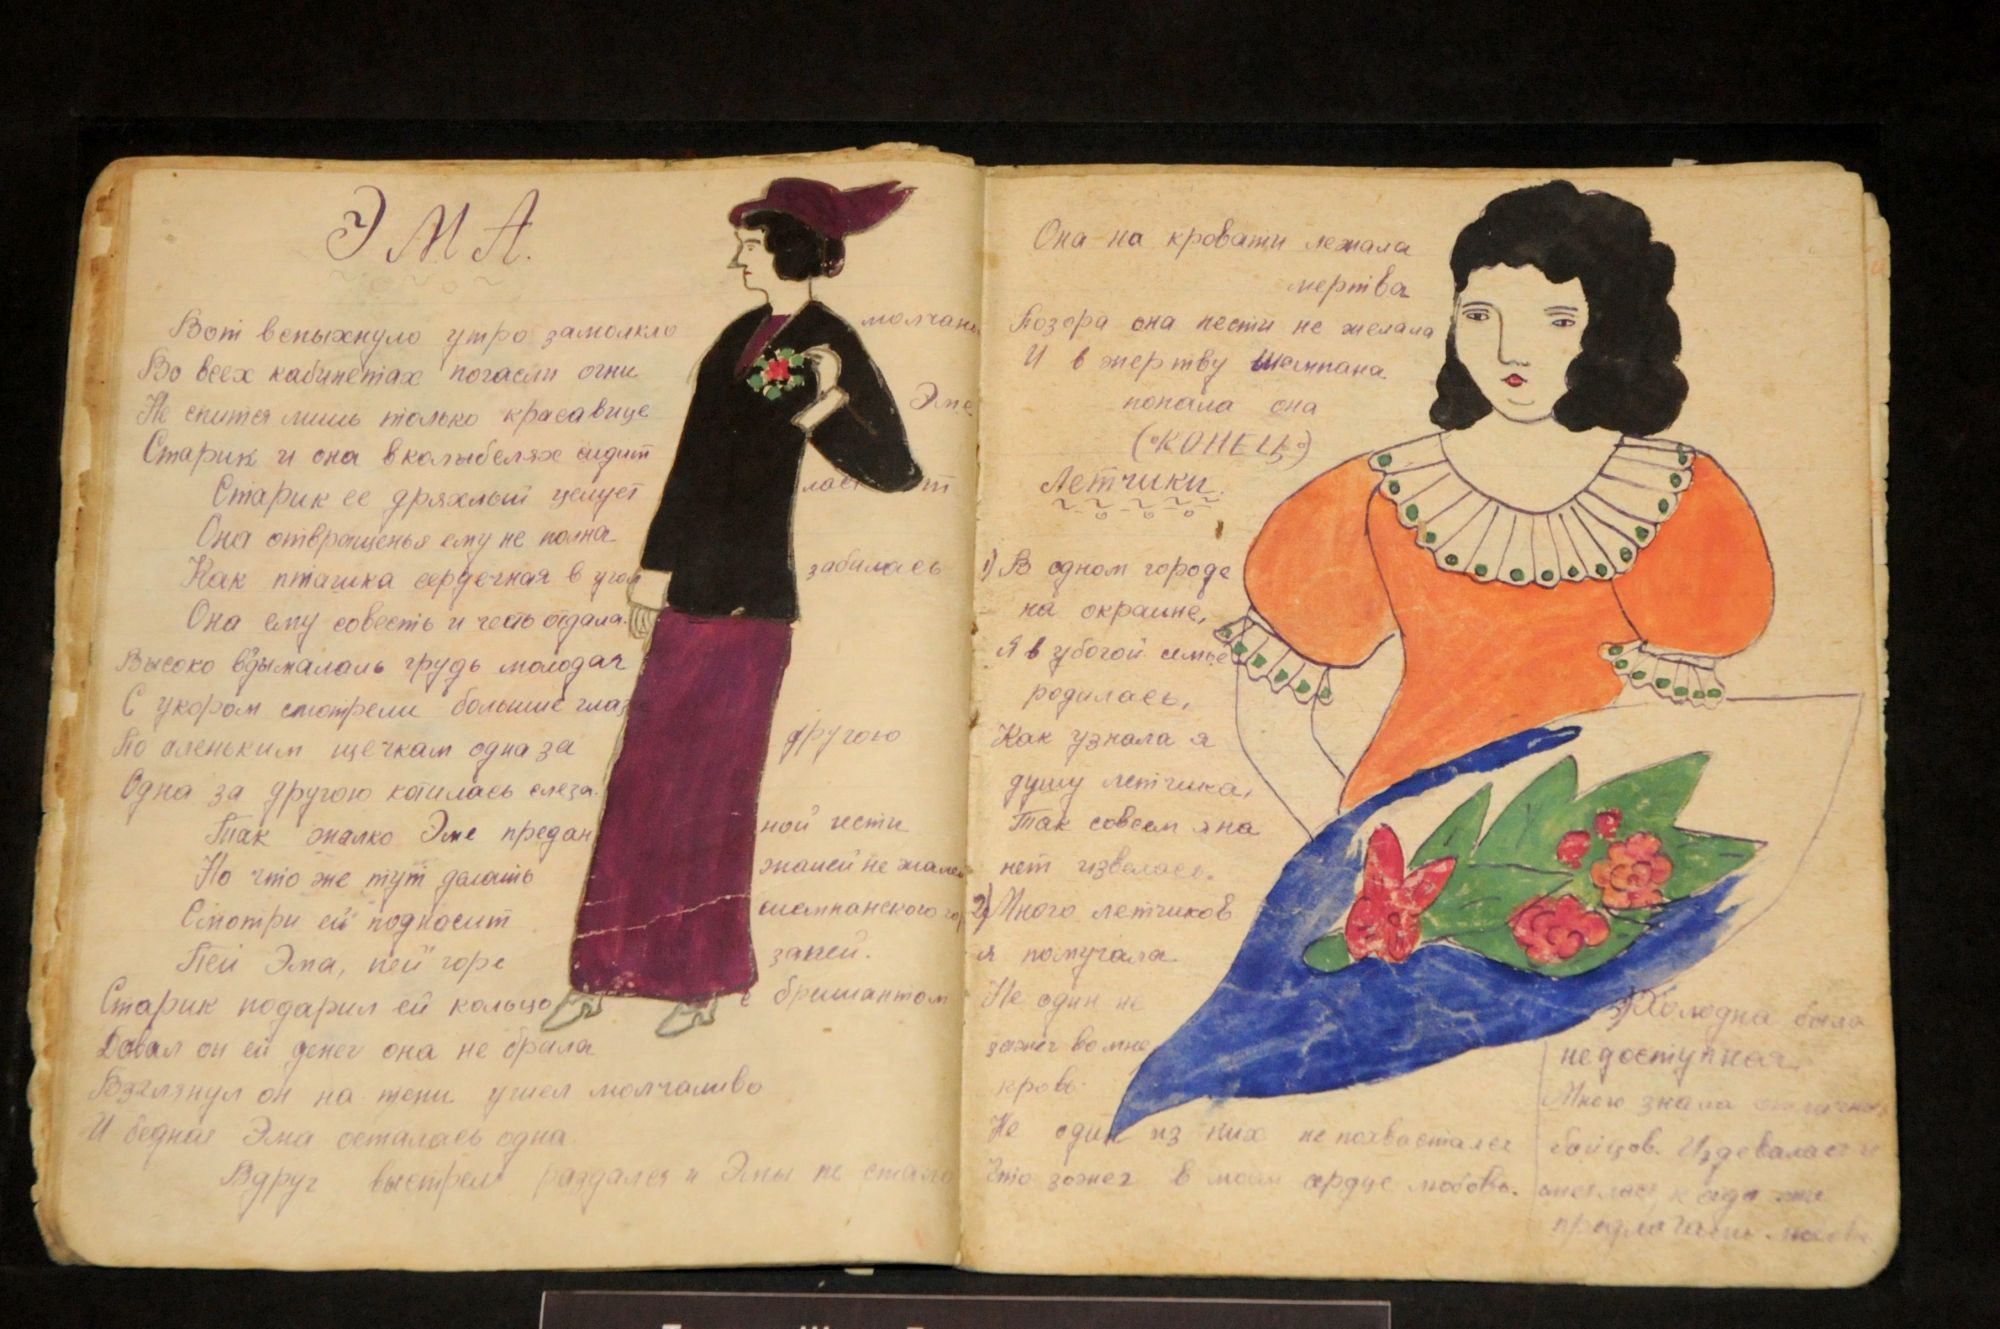 ЭМА.
Вот вспыхнуло утро замолкло молчань
Во всех кабинетах погасли огни
Не спится лишь только красавице Эме
Старик и она в колыбелях сидит
Старик ее дряхлый целует
Она отвращенья ему не полна
Как пташка сердечная в угол забилась
Она ему совесть и честь отдала.
Высоко вздымалаль грудь молодая
С укором смотрели большие глаз
По аленьким щечкам одна за другою
Одна за другою катилась слеза.
Так жалко Эме предан ной чести
Но что же тут делать жалей не жалей
Смотри ей подносит шемпанского
Пей Эма, пей горе запей.
Старик подарил ей кольцо с бришантом
Давал он ей денег она не брала
Взглянул он на тепи ушел молчаливо
И бедная Эма осталась одна
Вдруг выстрел раздался и Эмы не стало
Она на кровати лежала
мертва
Позора она нести не желала
И в жертву шемпана
попала она
(КОНЕЦ)
Летчики.
1) В одном городе
на окраине,
Я в убогой семье
родилась,
Как узнала я
душу летчика,
Так совсем я на
нет извелась.
2) Много летчиков
я помучала
Не один не
зажег во мне
кровь
Не один из них не похвастался
Что зажег в моем сердце любовь.
3) Холодна была
недоступная
Много знала
бойцов. Издевалась и
смеялась, когда мне
предлагали любовь